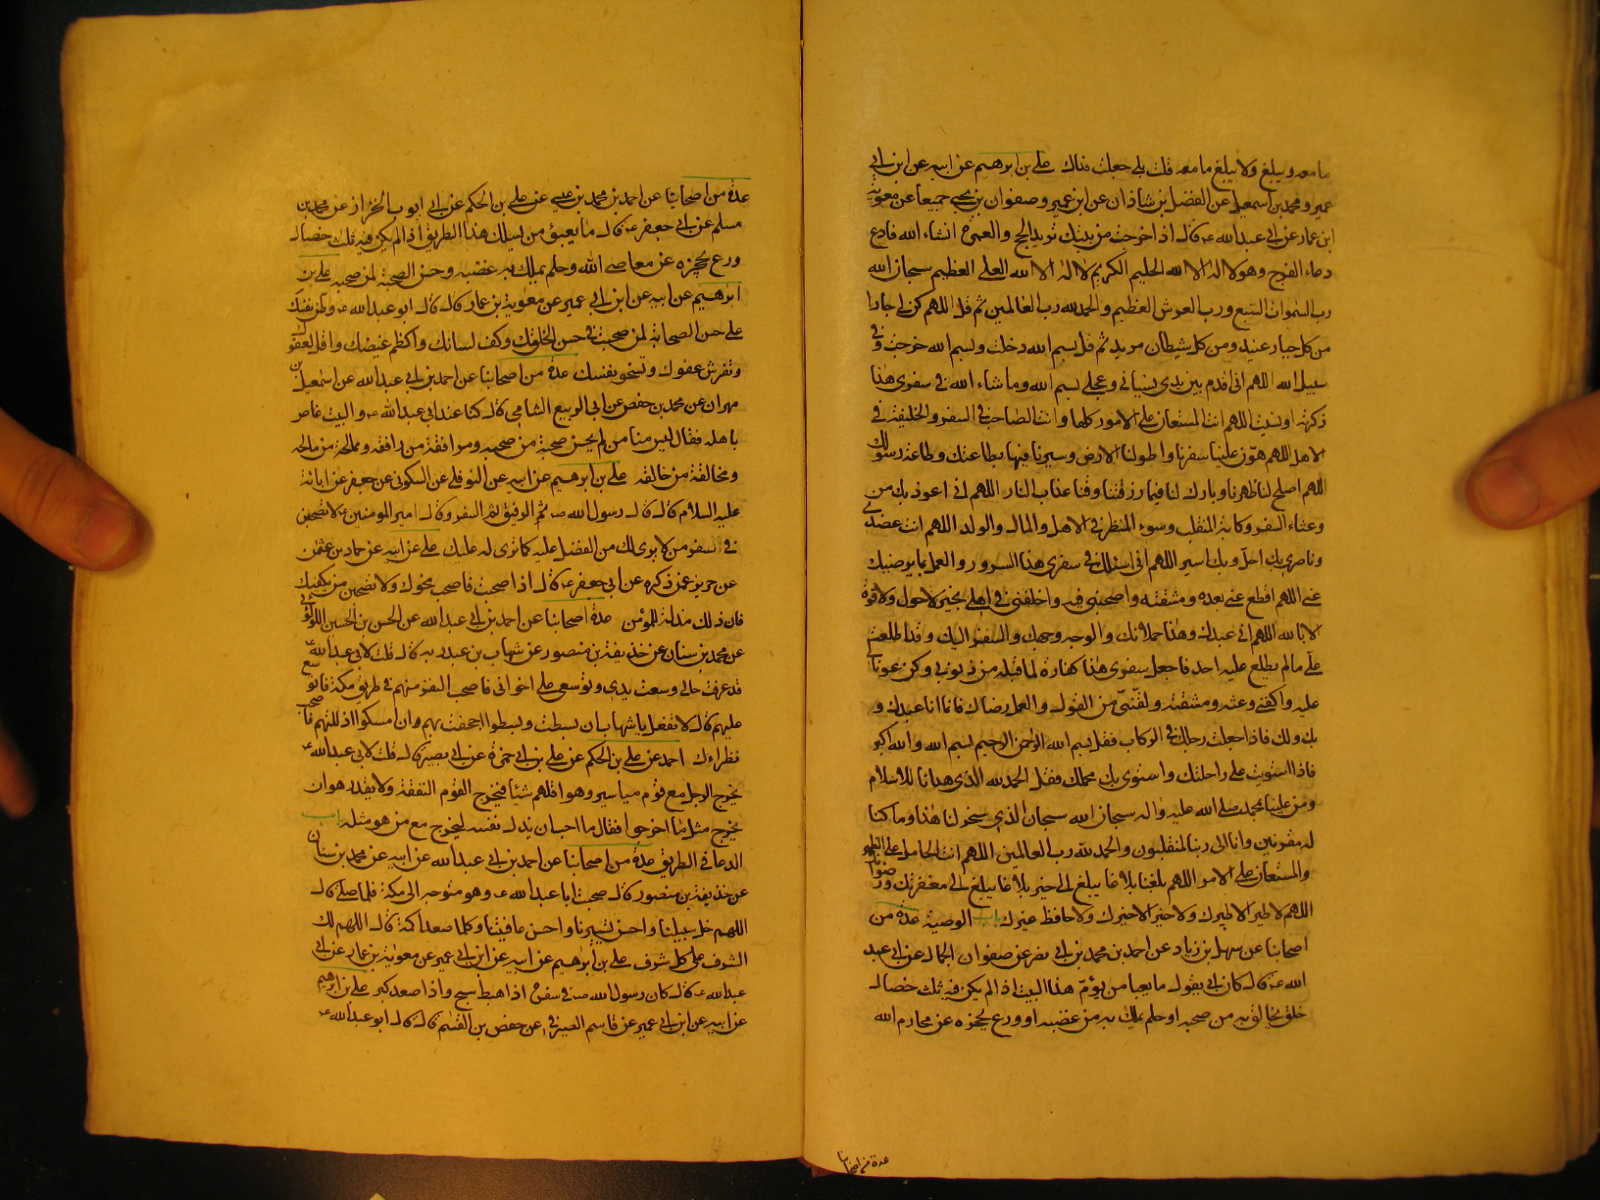 ما معه ويبلغ ولا يبلغ ما معه قلت بلى جعلت فداك علي بن ابرهيم عن ابيه عن ابن ابي
عمير و محمد بن اسمعيل عن الفضل بن شاذان عن ابن عمير و صفوان بن يحيى جميعا عن معوية
ابن عمار عن ابي عبد الله ع قال اذا خرجت من بيتك تريد الحج والعمرة انشاء الله فادع
دعاء الفرج وهو لا اله الا الله الحليم الكريم لا اله الا الله العلي العظيم سبحان الله
رب السموات السبع ورب العرش العظيم والحمد لله رب العالمين ثم قل اللهم كن لي جارا
من كل جبار عنيد ومن كل شيطان مريد ثم قل بسم الله دخلت وبسم الله خرجت وفي
سبيل الله اللهم اني اقدم بين يدي نسياني وعجلي بسم الله وما شاء الله في سفري هذا
ذكرته او نسيته اللهم انت المستعان على الامور كلها وانت الصاحب في السفر والخليفة في
الاهل اللهم هون علينا سفرنا واطو لنا الارض وسيرنا فيها بطاعتك وطاعة رسولك
اللهم اصلح لنا ظهرنا وبارك لنا فيما رزقتنا وقنا عذاب النار اللهم اني اعوذ بك من
وعثاء السفر وكابة المنقلب وسوء المنظر في الاهل والمال والولد اللهم انت عضدي
وناصري بك احل وبك اسير اللهم اني اسئلك في سفري هذا السرور والعمل بما يرضيك
عني اللهم اقطع عني بعده ومشقته واصحبني فيه واخلفني في اهلي بخير لا حول ولا قوة
الا بالله اللهم اني عبدك وهذا حملانك والوجه وجهك والسفر اليك وقد اطلعت
على ما لم يطلع عليه احد فاجعل سفري هذا كفارة لما قبله من ذنوبي وكن عونا لي
عليه واكفني وعثه ومشقته ولقني من القول والعمل رضاك فانما انا عبدك و
بك ولك فاذا جعلت رجلك في الركاب فقل بسم الله الرحمن الرحيم بسم الله والله اكبر
فاذا استويت على راحلتك واستوى بك محملك فقل الحمد لله الذي هدانا للاسلام
ومن علينا بمحمد صلى الله عليه واله سبحان الله سبحان الذي سخر لنا هذا وما كنا
له مقرنين وانا الى ربنا لمنقلبون والحمد لله رب العالمين اللهم انت الحامل على الظهر
والمستعان على الامر اللهم بلغنا بلاغا يبلغ الى خير بلاغا يبلغ الى مغفرتك ورضوانك
اللهم لا طير الا طيرك ولا خير الا خيرك ولا حافظ غيرك باب الوصية عدة من
اصحابنا عن سهل بن زياد عن احمد بن محمد بن ابي نصر عن صفوان الجمال عن ابي عبد
الله ع قال كان ابي يقول ما يعبأ من يؤم هذا البيت اذا لم يكن فيه ثلث خصال
خلق يخالق به من صحبه او حلم يملك به من غضبه او ورع يحجزه عن محارم الله
عدة من اصحابنا
عدة من اصحابنا عن احمد بن محمد بن عيسى عن علي بن الحكم عن ابي ايوب الخزاز عن محمد بن
مسلم عن ابي جعفر ع قال ما يعبؤ من يسلك هذا الطريق اذا لم يكن فيه ثلث خصال
ورع يحجزه عن معاصي الله وحلم يملك به غضبه وحسن الصحبة لمن صحبه علي بن
ابرهيم عن ابيه عن ابن ابي عمير عن معوية بن عمار قال قال ابو عبد الله ع وطن نفسك
على حسن الصحابة لمن صحبت في حسن الخلقك وكف لسانك واكظم غيضك واقل لغوك
وتفرش عفوك وتسخو نفسك عدة من اصحابنا عن احمد بن ابي عبد الله عن اسمعيل بن
مهران عن محمد بن حفص عن ابي الربيع الشامي قال كنا عند ابي عبد الله ع والبيت غاص
باهله فقال ليس منا من لم يحسن صحبة من صحبه وموافقة من رافقه وممالحة من مالحه
ومخالفة من خالقه علي بن ابرهيم عن ابيه عن النوفلي عن السكوني عن جعفر عن ابائه
عليه السلام قال قال رسول الله ص ثم الرفيق ثم السفر وقال امير المؤمنين ع لا تصحبن
في سفر من لا يرى لك من الفضل عليه كما ترى له عليك علي عن ابيه عن حماد بن عثمن
عن حريز عمن ذكره عن ابي جعفر ع قال اذا صحبت فاصحب نحوك ولا تصحبن من يكفيك
فان ذلك مذلة للمؤمن عدة اصحابنا عن احمد بن ابي عبد الله عن الحسن بن الحسين اللؤلؤي
عن محمد بن سنان عن حذيفة بن منصور عن شهاب بن عبد ربه قال قلت لابي عبد الله ع
قد عرفت حالي وسعت يدي وتوسعي على اخواني فاصحب النفر منهم في طريق مكة فاتوسع
عليهم قال لا تفعل يا شهاب ان بسطت وبسطوا اجحفت بهم وان امسكوا اذللتهم فاصحب
نظراءك احمد عن علي بن الحكم عن علي بن ابي حمزة عن ابي بصير قال قلت لابي عبد الله ع
يخرج الرجل مع قوم مياسير وهو اقلهم شيئا فيخرج القوم النفقة ولا يقدر هو ان
يخرج مثل ما اخرجوا فقال ما احب ان يذل نفسه ليخرج مع من هو مثله باب
الدعا في الطريق عدة من اصحابنا عن احمد بن ابي عبد الله عن ابيه عن محمد بن سنان
عن حذيفة بن منصور قال صحبت ابا عبد الله ع وهو متوجه الى مكة فلما صلى قال
اللهم خل سبيلنا واحسن تسييرنا واحسن عافيتنا وكلما صعد اكمة قال اللهم لك
الشرف على كل شرف علي بن ابرهيم عن ابيه عن ابن ابي عمير عن معوية بن عمار عن ابي
عبد الله ع قال كان رسول الله ص في سفره اذا هبط سبح واذا صعد كبر علي بن ابرهيم
عن ابيه عن ابن ابي عمير عن قاسم الصيرفي عن حفص بن القسم قال قال ابو عبد الله ع